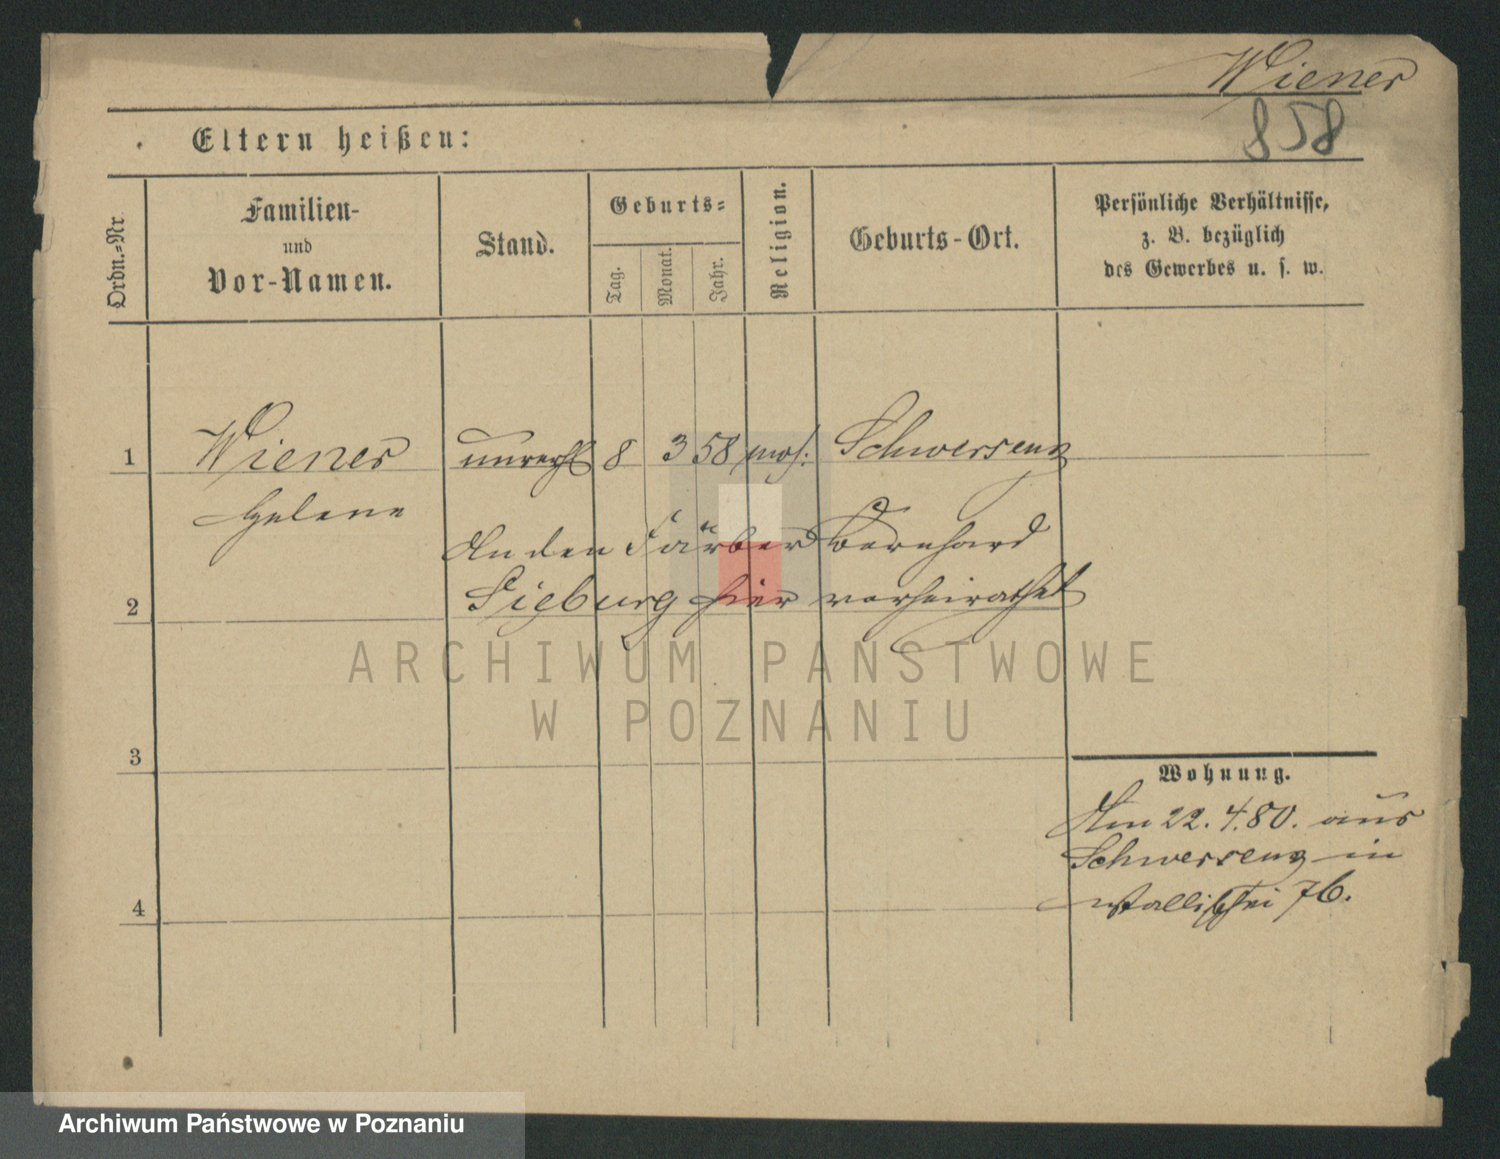 Wiener
858
Eltern heißen:
Ordn.-Nr
Familien-
und
Vor-Namen.
Stand.
Geburts-
Tag.
Monat.
Jahr.
Religion.
Geburts-Ort.
Persönliche Verhältnisse,
z. B. bezüglich
des Gewerbes u. s. w.
1 Wiener unverehl 8 3 58 mos. Schwersenz
Helene
An den Färber Bernhard
2 Sieburg hier verheirathet
ARCHIWUM PAŃSTWOWE
W POZNANIU
3
Wohnung.
Am 22. 4. 80. aus
Schwersenz in
Wallischei 76.
4
Archiwum Państwowe w Poznaniu